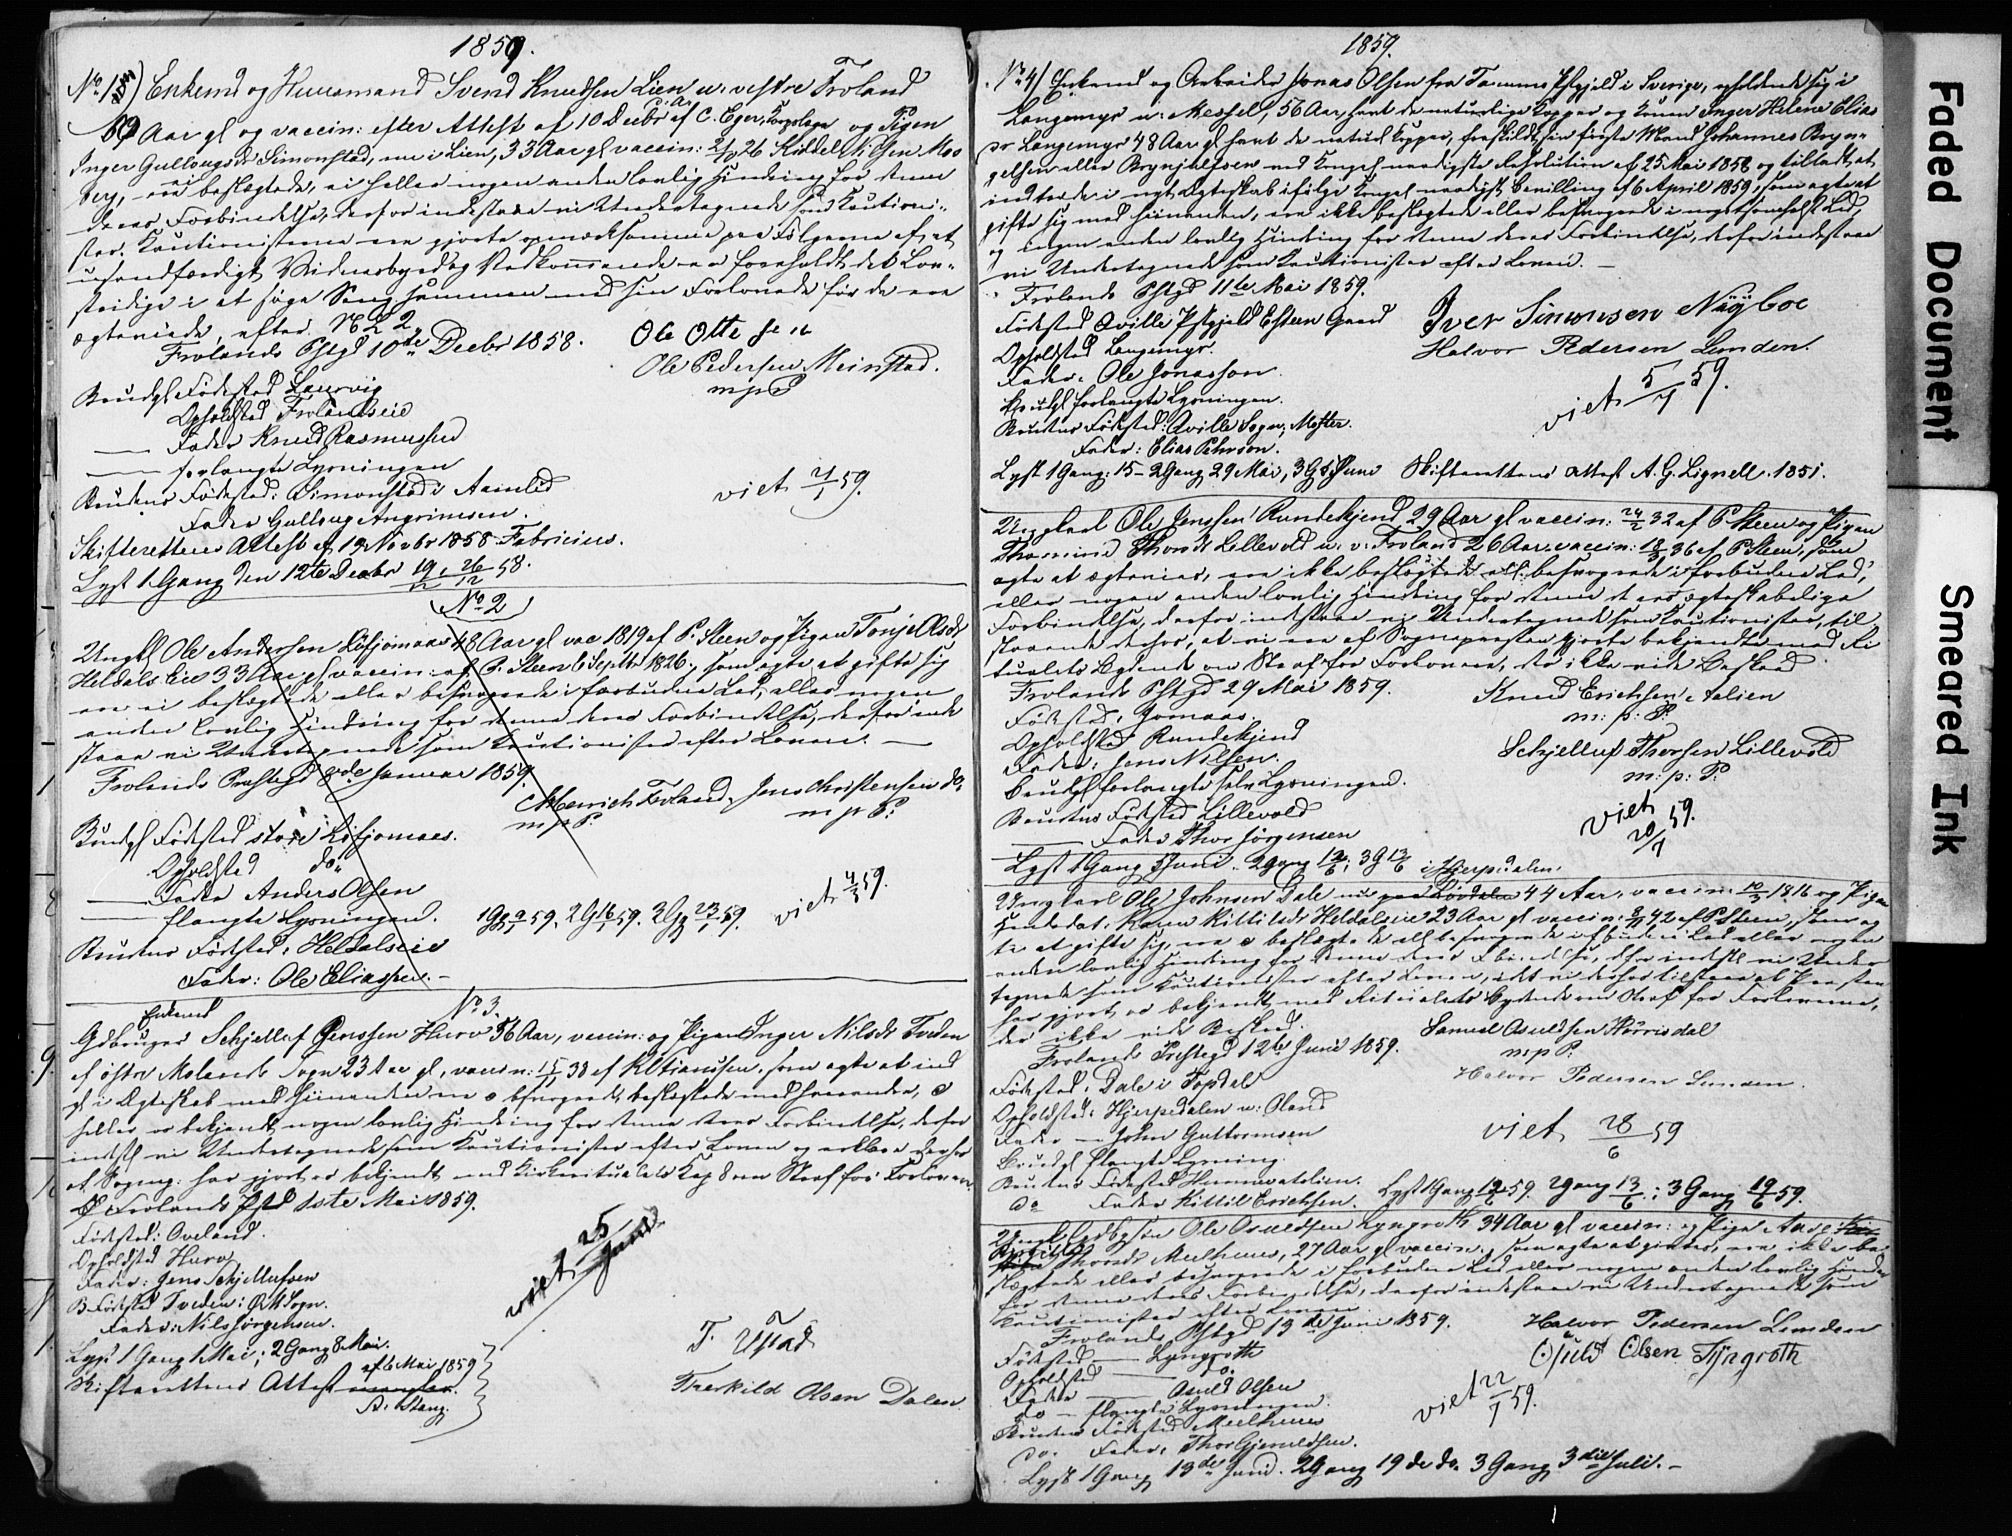 1859.
No 1) Enkemd og Huusmand Svend Knudsen Lien u. vestre Froland
69 Aar gl og vaccin: efter Attest af 10 Decbr af C. Eger, og Pigen
Inger Gullougsdr Simonstad, nu i Lien, 33 Aar gl vaccin: 26 Nilsen Mos
berg, ei beslægtede, ei heller nogen anden lovlig Hindring for denne
deres Forbindelse, derfor indestaae vi Undertegnede som Cautioni-
ster. Cautionisterne ere gjorte opmærksomme paa Følgerne af et
usandfærdigt Vidnesbyrd og Vedkommende ere foreholdt det Lov-
stridige i at søge Seng sammen med sin Forlovede før de ere
ægteviede, efter
Frolands Pstgd 10de Decbr 1858.
Ole Ottesen
Ole Pedersen Meinstad.
m p P
Brudg. Fødested Laurvig
Opholdsted Frolandseie
Fader Knud Rasmussen
forlangte Lysningen
Brudens Fødested: Simonstad i Aamlid
Fader Gulloug Angrimsen.
viet 59.
Skifterettens Attest af 19 Novbr 1858 Fabricius.
Lyst 1 Gang den 12te Decbr 19/12, 26/12 58.
No 2
Ungk Ole Andersen Løfjomaas 48 Aar gl vac 1819 af P. Steen og Pigen Tonje Olsdr
Heldalseie 33 Aar gl vaccin: af P. Steen 6 Septbr 1826, som agte at gifte sig
ere ei beslægtede eller besvogrede i forbudne Led, eller nogen
anden lovlig Hindring for denne deres Forbindelse, derfor inde
staae vi Undertegnede som Cautionister efter Loven. —
Frolands Præstegd Januar 1859.
Henrich Froland, Jens Christensen do.
m p P. m p P.
Brudg. Fødested store Løfjomaas.
Opholdsted do
Fader Anders Olsen
flangte Lysningen.
Brudens Fødested: Heldalseie
Fader: Ole Eliassen. —
1 Gg 9/1 59. 2 G 16/1 59. 3 Gg 23/1 59.
viet 4/3 59.
No 3.
Enkemd
Gdbruger Schjelluf Jenssen Hurv 56 Aar, vaccin: og Pigen Inger Nilsdr Tveden
af østre Molands Sogn 23 Aar gl, vaccin: 38 af som agte at ind
gaae i Ægteskab med hinanden ere besvogrede, beslægtede med hinanden,
heller er bekjendt nogen lovlig Hindring for denne deres Forbindelse, derfor
indstaae vi Undertegnede som Cautionister efter Loven og erklære derhos
at Sogneg: har gjort os bekjendt med Kirkeritualets Kap 8 om Straf for Forlovere.
Frolands Pstd 1ste Mai 1859.
Fødested: Oveland.
Opholdsted Hurv
Fader: Jens Schjellufsen
B. Fødested Tveden: Ø M Sogn.
Fader: Nils Jørgensen.
Lyst 1 Gang 1 Mai; 2 Gang 8 Mai.
Skifterettens Attest af 6 Mai 1859
Stang.
viet 25 Juni
T. Ufsad
Therkild Olsen Dalen
1859.
No 4) Enkemd og Arbeider Jonas Olsen fra Tanums Pstgjeld i Sverige, opholdende sig i
Langemyr u: Messel, 56 Aar, havt de naturlige Kopper og Konen Inger Helene Elias
dr Langemyr 48 Aar gl havt de naturl Kopper, fraskildt sin første Mand Johannes Bryn-
gelsen eller Brynjulfsen ved Kongel naadigste Resolution af 25 Mai 1858 og tilladt at
indtræde i nyt Ægteskab ifølge Kongel naadigst Bevilling af 6 April 1859, som agte at
gifte sig med hinanden, ere ikke beslægtede eller besvogrede i nogetsomhelst Led,
og ingen anden lovlig Hindring for denne deres Forbindelse, derfor indestaae
vi Undertegnede som Cautionister efter Loven. —
Frolands Pstgd 11te Mai 1859.
Iver Simonsen Nüyboe
Halvor Pedersen Lunden.
Fødested Qville Pstgjeld Gaard
Opholdsted Langemyr.
Fader: Ole Jonasson.
Brudg forlangte Lysningen.
Brudens Fødested: Qville Sogn,
Fader: Elias Pehrson.
viet 5/7 59.
Lyst 1 Gang: 15 - 2 Gang 29 Mai, 3 G 5 Juni Skifterettens Attest A. G. Lignell. 1851.
Ungkarl Ole Jenssen Rundekjend 29 Aar gl vaccin: 24/2 32 af P Steen og Pigen
Thorsdr Lillevold u. v. Froland 26 Aar vaccin: 18/3 36 af P. Steen, som
agte at ægtevies, ere ikke beslægtede ell: besvogrede i forbudne Led,
eller nogen anden lovlig Hindring for denne deres ægteskabelige
Forbindelse, derfor indestaae vi Undertegnede som Cautionister, til
staaende derhos, at vi ere af Sognepræsten gjorte bekjendte med Ri
tualets Bydende om Straf for Forlovere, der ikke vide Besked.
Frolands Pstgd 29 Mai 1859.
Knud Erichsen Aslien
m: p: P.
Schjelluf Thorsen Lillevold
m: p: P.
Fødested, Jomaas
Opholdsted Rundekjend
Fader: Jens Nilsen.
Brudg forlangte selv Lysningen.
Brudens Fødested Lillevold
Fader Thor Jørgensen
viet 20/7 59.
Lyst 1 Gang 5 Juni. 2 gang 12/6; 3 G 13/6
i Hjerpedalen.
Ungkarl Ole Johnsen Dale nu 44 Aar, vaccin: 1816 og Pigen
Karen Kittilsdr Heldalseie 23 Aar gl vaccin: 42 af P Steen, som ag
te at gifte sig, ere ei beslægtede ell besvogrede i fbudne Led eller nogen
anden lovlig Hindring for denne deres Fbindelse, dfor indestaae vi Under
tegnede som Cautionister efter Loven, idet vi derhos tilstaae at Præsten
har gjort os bekjendt med Ritualets Bydende om Straf for Forlovere,
der ikke vide Besked.
Frolands Prestegd 12te Juni 1859.
Samuel Osuldsen Hørrisdal
m p P:
Halvor Pedersen Lunden.
Fødested, Dale i Topdal
Opholdsted, Hjerpedalen u: Oland
Fader — John Guttormsen
Brudg flangte Lysning.
Brudens Fødested
do Fader Kittil Erichsen.
viet 28/6 59
Lyst 1 Gang 12/6 59. 2 gang 13/6; 3 Gang 19/6 59.
Ungk Gdbgsøn Ole Osuldsen Lyngroth 34 Aar gl vaccin: og Pige
Thorsdr Meelhuus, 27 Aar gl vaccin:, som agte at giftes, ere ikke be-
slægtede eller besvogrede i forbudne Led eller nogen anden lovlig Hindr
for denne deres Forbindelse, derfor indestaae vi Undertegnede som
Cautionister efter Loven.
Frolands Pstgd 13de Juni 1859.
Halvor Pedersen Lunden
Osuld Olsen Tyngroth
Fødested — Lyngroth
Opholdsted — do.
Fader — Osuld Olsen
do — flangte Lysningen.
Brudens Fødested Meelhuus
do. Fader, Thor Gjeruldsen.
viet 22/7 59.
Lyst 1 Gang 13de Juni. 2 Gang 19 de do. 3 Gang 3die Juli. —
Faded Document
Smeared Ink